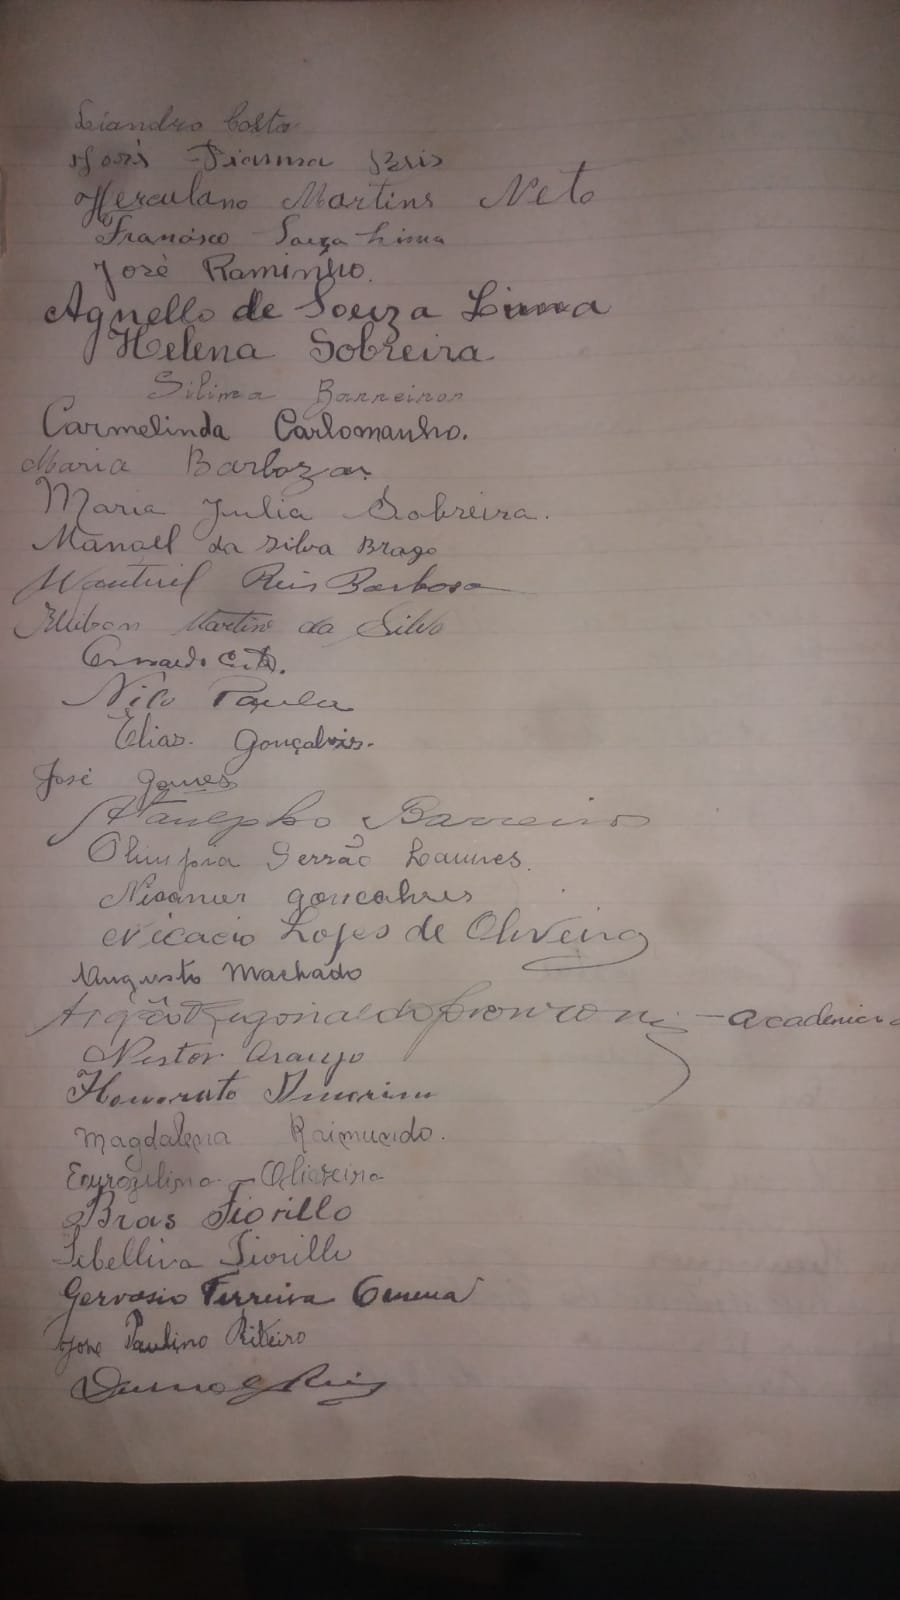 Leandro Costa
José Pianna Reis
Herculano Martins Neto
Francisco Souza Lima
José Raminho.
Agnello de Souza Lima
Helena Sobreira
Silima Barreiros
Carmelinda Carlomanho.
Maria Barboza.
Maria Julia Sobreira.
Manoel da Silva Braga
Wantuil Reis Barbosa
Wilson Martins da Silva
Costa.
Nilo Paula
Elias. Gonçalves.
José Gomes
Barreiros
Olimpia Serrão Launes.
Nicanor gonçalves
Nicacio Lopes de Oliveira
Augusto Machado
Reginaldo - academico
Nestor Araujo
Honorato Amorim
Magdalena Raimundo.
Oliveira
Bras Fiorillo
Fiorillo
Gervasio Ferreira
José Paulino Ribeiro
Reis